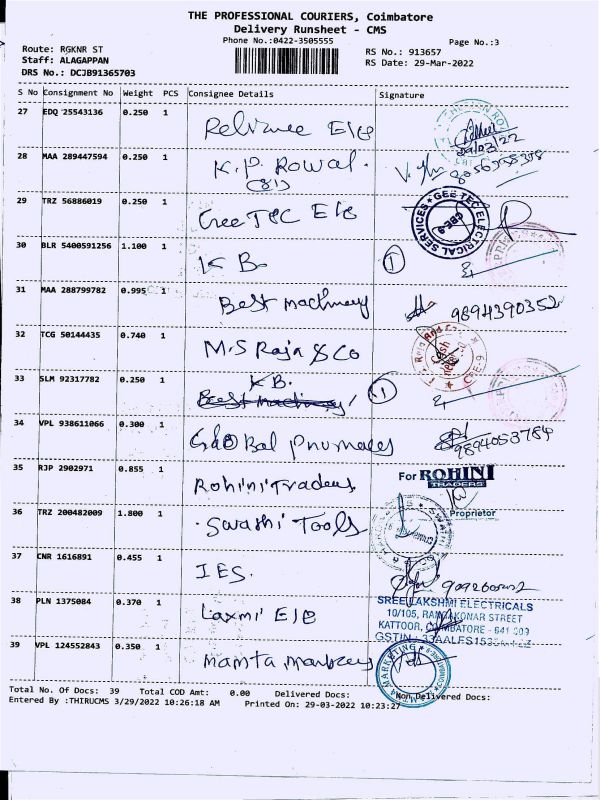 THE PROFESSIONAL COURIERS, Coimbatore
Delivery Runsheet - CMS
Phone No.:0422-3505555
Page No.:3
Route: RGKNR ST
RS No.: 913657
Staff: ALAGAPPAN
RS Date: 29-Mar-2022
DRS No.: DCJB91365703
S No Consignment No Weight PCS Consignee Details Signature
27 EDQ 25543136 0.250 1 Reliance E/e
29/03/22
28 MAA 289447594 0.250 1 K.P. Rowal.
(S1)
29 TRZ 56886019 0.250 1 Gee TEC E/e
GEE TEC ELECTRICAL SERVICES
CBE-9
30 BLR 5400591256 1.100 1 K B. 1
31 MAA 288799782 0.995 1 Best machinery 9894390352
32 TCG 50144435 0.740 1 M.S Raja & Co
CBE-9
33 SLM 92317782 0.250 1 K B. 1
Best machinery
34 VPL 938611066 0.300 1 Global Pnumates 9894053784
35 RJP 2902971 0.855 1 Rohini Traders
For ROHINI
TRADERS
Proprietor
36 TRZ 200482009 1.800 1 Swathi Tools
37 CNR 1616891 0.455 1 IES.
38 PLN 1375084 0.370 1 Laxmi E/e
SREE LAKSHMI ELECTRICALS
10/105, RANGAKONAR STREET
KATTOOR, COIMBATORE - 641 009
GSTIN : 33AALES153
39 VPL 124552843 0.350 1 mamta markeey
MARKETING
Total No. Of Docs: 39 Total COD Amt: 0.00 Delivered Docs: Non Delivered Docs:
Entered By :THIRUCMS 3/29/2022 10:26:18 AM Printed On: 29-03-2022 10:23:27